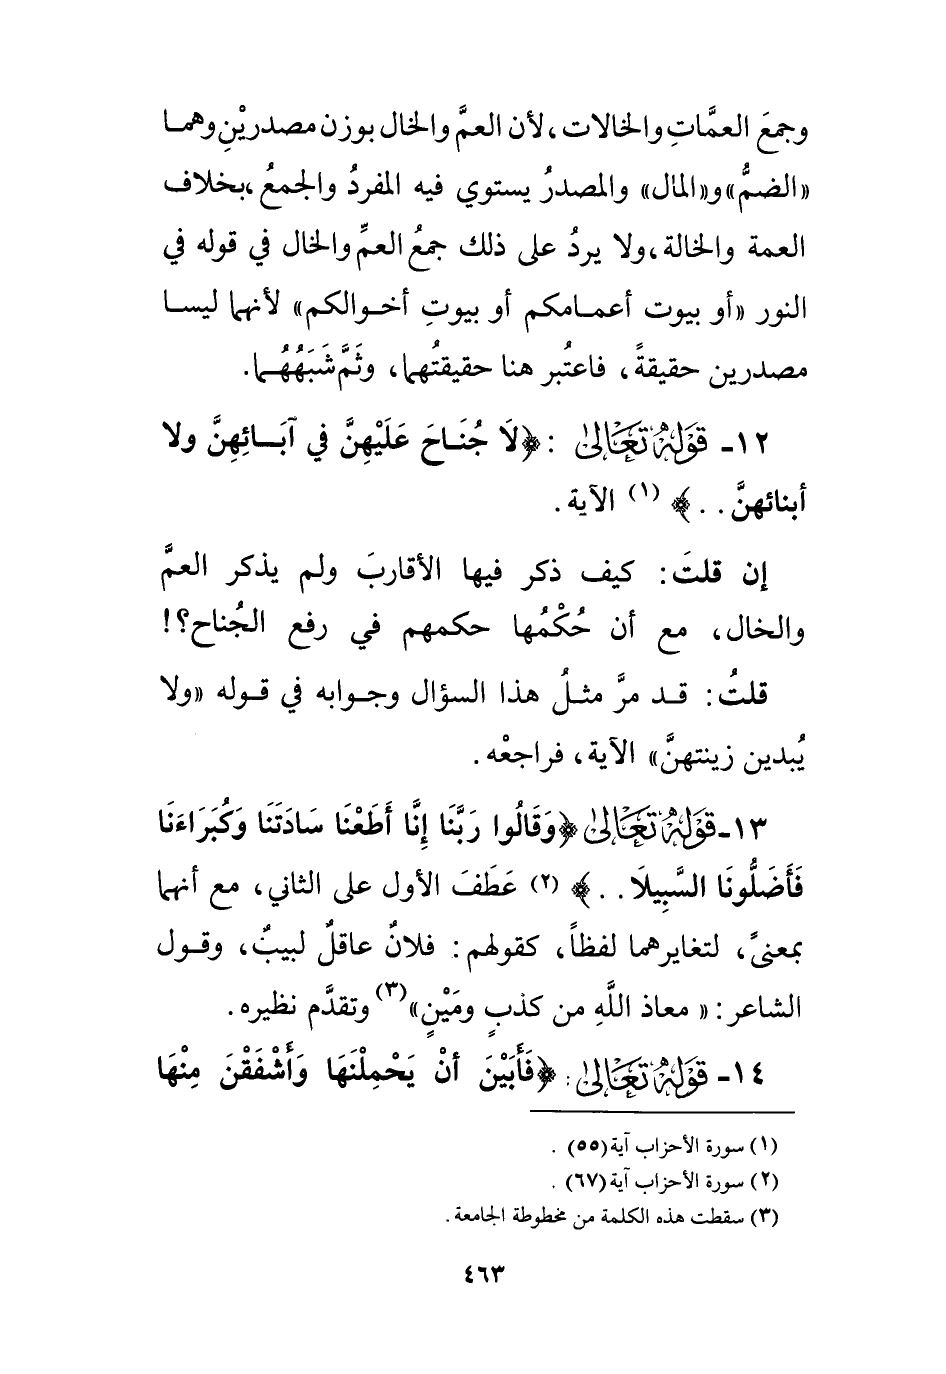 وجمعَ العمَّاتِ والخالات، لأن العمَّ والخال بوزن مصدريْنِ وهما
«الضمُّ» و«المال» والمصدرُ يستوي فيه المفردُ والجمعُ، بخلاف
العمة والخالة، ولا يردُ على ذلك جمعُ العمِّ والخال في قوله في
النور «أو بيوت أعمامكم أو بيوتِ أخوالكم» لأنهما ليسا
مصدرين حقيقةً، فاعتُبر هنا حقيقتُهما، وثَمَّ شَبَهُهُما.
١٢- قَوْلُهُ تَعَالَىٰ : ﴿لَا جُنَاحَ عَلَيْهِنَّ في آبَائِهِنَّ ولا
أبنائهنَّ . .﴾ (١) الآية .
إن قلتَ: كيف ذكر فيها الأقاربَ ولم يذكر العمَّ
والخال، مع أن حُكْمُها حكمهم في رفع الجُناح؟!
قلتُ: قد مرَّ مثلُ هذا السؤال وجوابه في قوله «ولا
يُبدين زينتهنَّ» الآية، فراجعْه .
١٣- قَوْلُهُ تَعَالَىٰ ﴿وَقَالُوا رَبَّنَا إنَّا أَطَعْنَا سَادَتَنَا وَكُبَرَاءَنَا
فَأَضَلُّونَا السَّبِيلَا . .﴾ (٢) عَطَفَ الأول على الثاني، مع أنهما
بمعنىً، لتغايرهما لفظاً، كقولهم: فلانٌ عاقلٌ لبيبٌ، وقول
الشاعر: « معاذ اللَّهِ من كذبٍ ومَيْنٍ»(٣) وتقدَّم نظيره.
١٤- قَوْلُهُ تَعَالَىٰ : ﴿فَأَبَيْنَ أنْ يَحْمِلْنَهَا وَأَشْفَقْنَ مِنْهَا
(١) سورة الأحزاب آية (٥٥) .
(٢) سورة الأحزاب آية (٦٧) .
(٣) سقطت هذه الكلمة من مخطوطة الجامعة .
٤٦٣